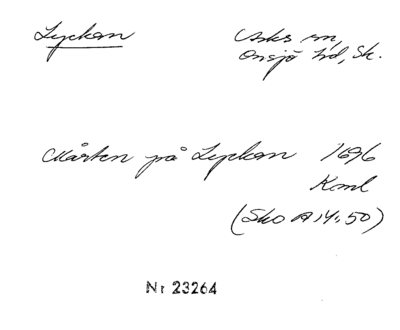 Lyckan
Asks sn,
Onsjö hd, Sk.
Mårten på Lyckan 1696
Koml
(Sko A IV:50)
Nr 23264